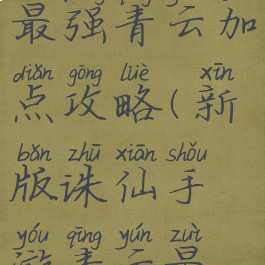 最强青云加
diǎn gōng lüè xīn
点攻略(新
bǎn zhū xiān shǒu
版诛仙手
yóu qīng yún zuì
游青云最